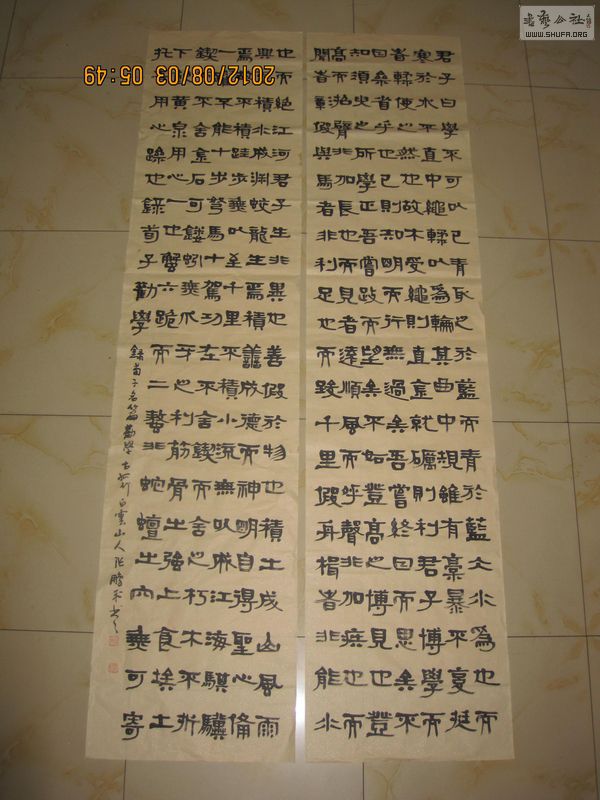 君子曰學不可以已青取之於藍而青於藍冰水為也而
寒於水木直中繩輮以為輪其曲中規雖有槁暴不復挺
者輮使之然也故木受繩則直金就礪則利君子博學而
日參省乎己則知明而行無過矣吾嘗終日而思矣不
如須臾之所學也吾嘗跂而望矣不如登高之博見也登
高而招臂非加長也而見者遠順風而呼聲非加疾也而
聞者彰假與馬者非利足也而致千里假舟楫者非能水
也而絕江河君子生非異也善假於物也積土成山風雨
興焉積水成淵蛟龍生焉積善成德而神明自得聖心備
焉不積跬步無以至千里不積小流無以成江海騏驥
一躍不能十步駑馬十駕功在不舍鍥而舍之朽木不折
鍥而不舍金石可鏤也蚓無爪牙之利筋骨之強上食埃土
下飲黃泉用心一也蟹六跪而二螯非蛇蟺之穴無可寄
托者用心躁也錄荀子勸學
錄荀子名篇勸學 白雲山人
2012/08/03 05:49
书艺公社
WWW.SHUFA.ORG